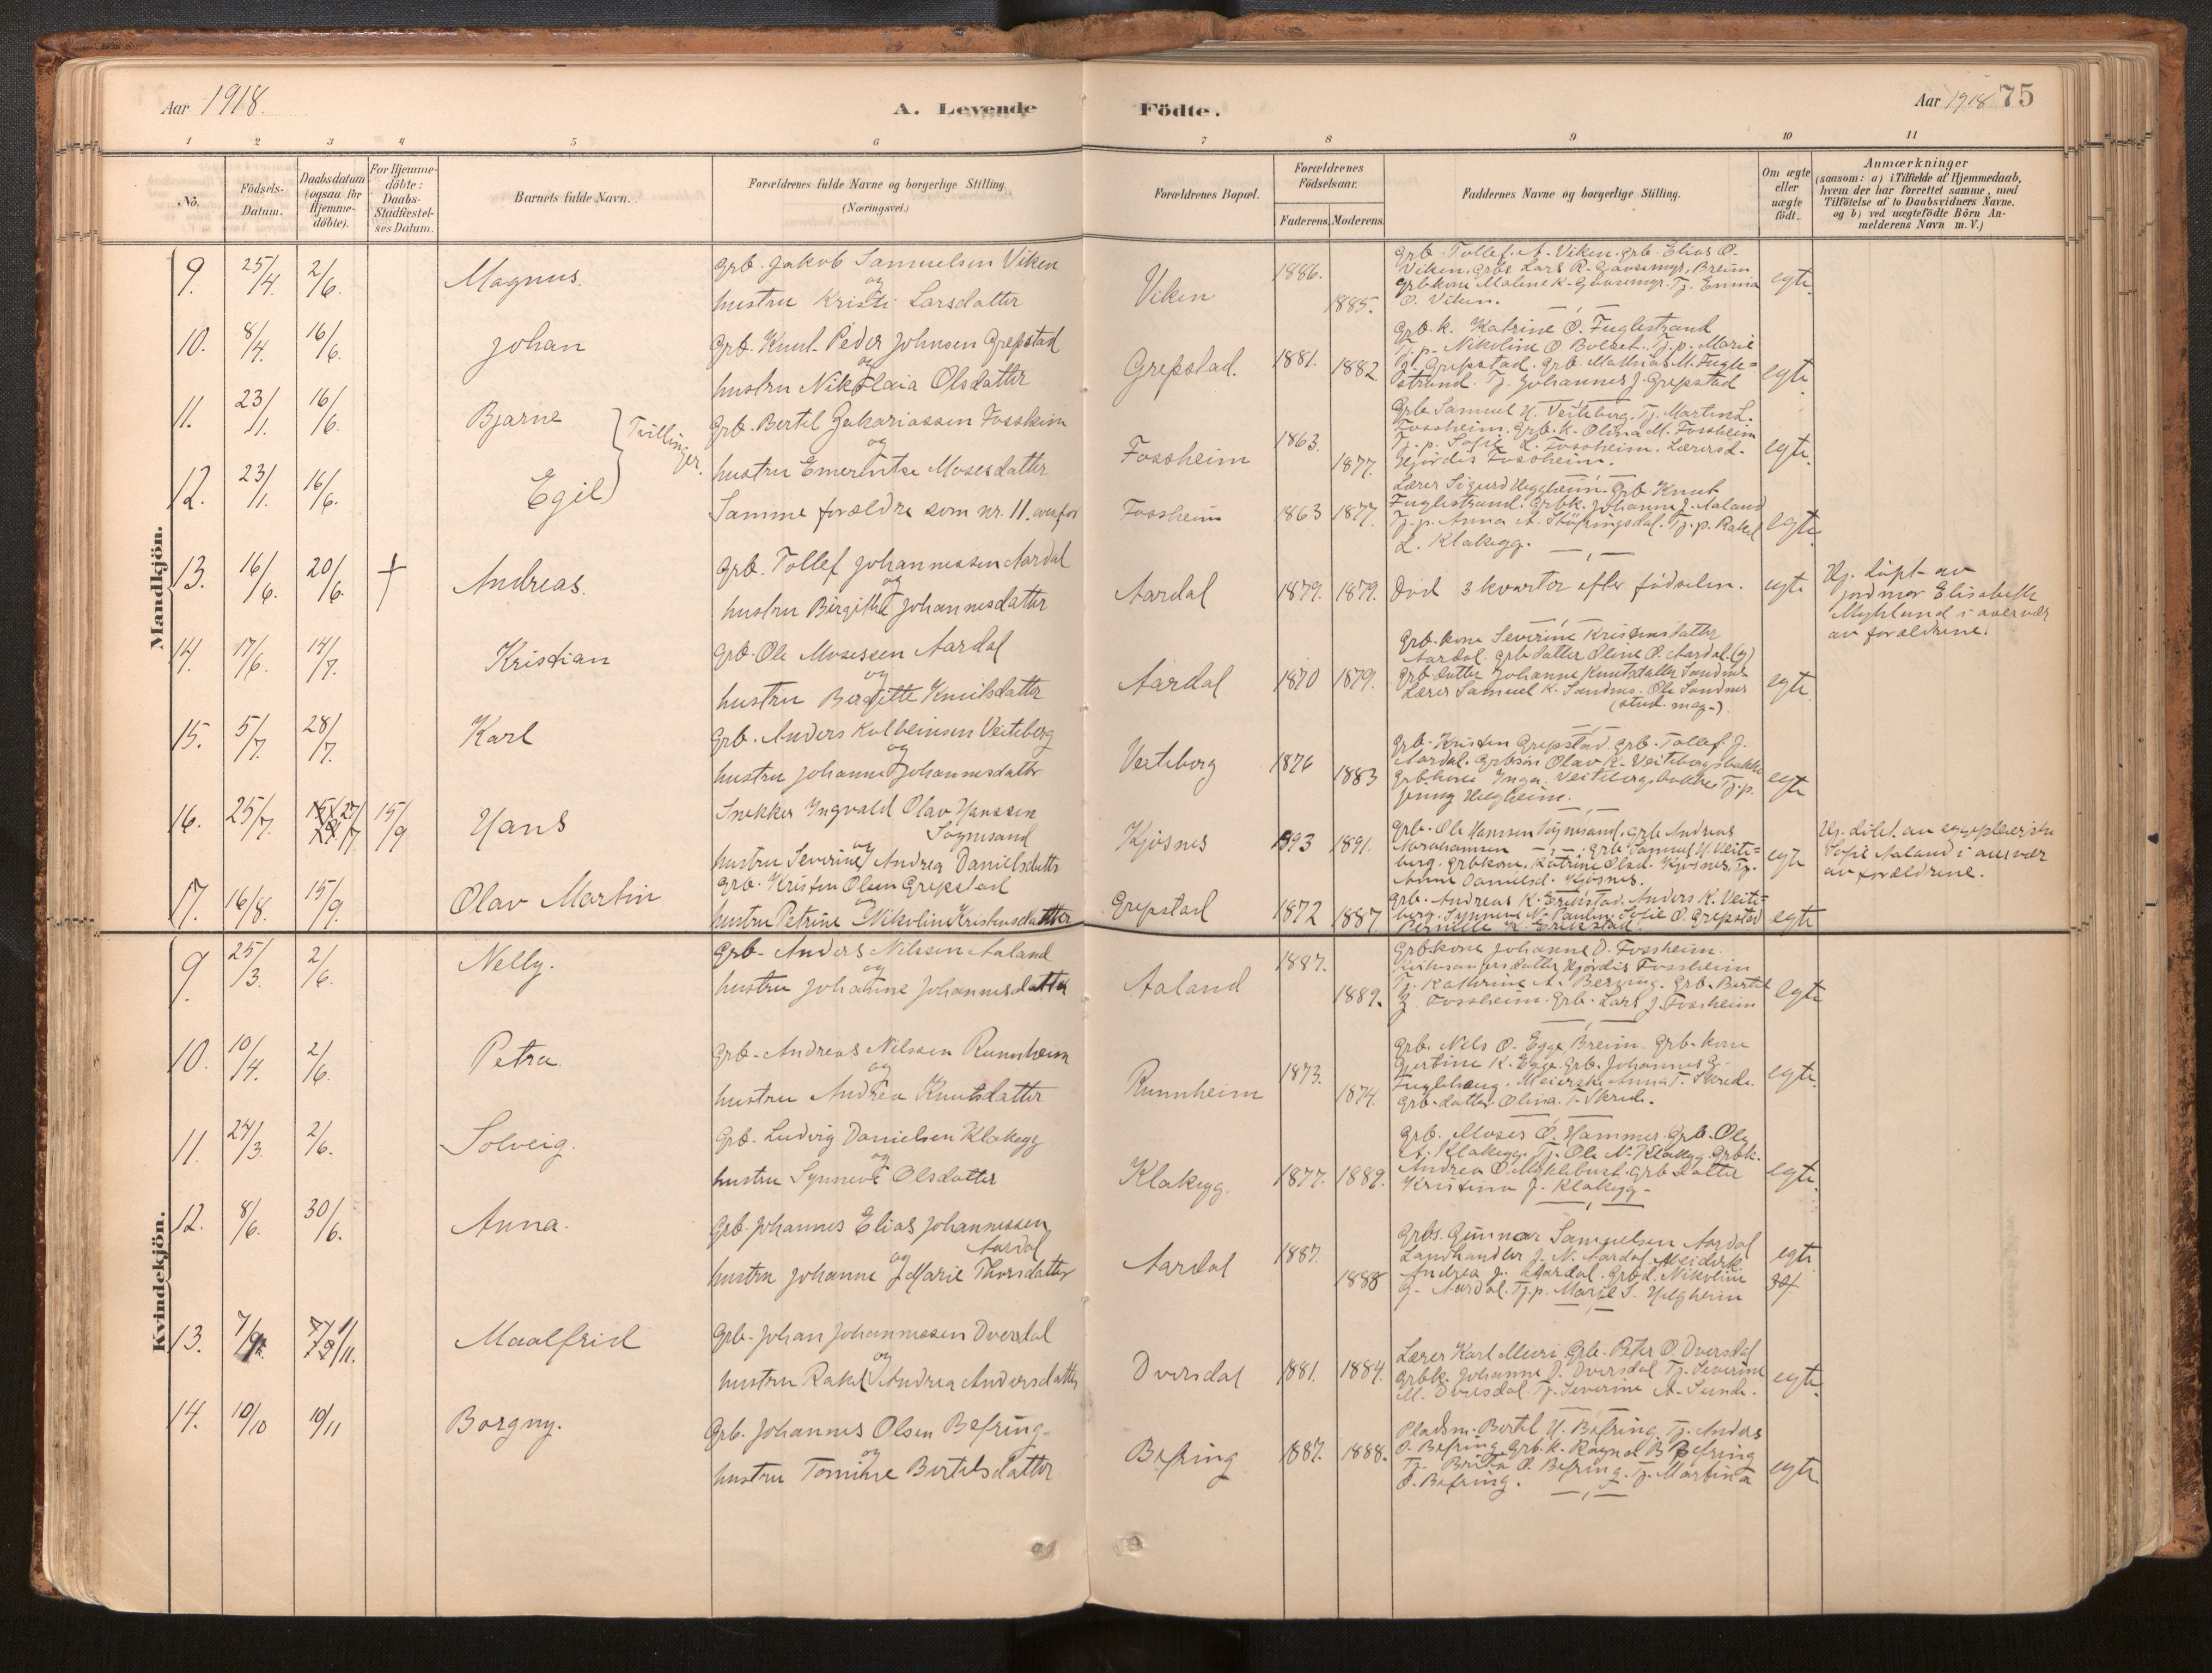 Aar 1918.
A. Levende Födte.
Aar 1918 75
1 2 3 4 5 6 7 8 9 10 11
No.
Födsels-Datum.
Daabsdatum (ogsaa for Hjemmedöbte).
For Hjemmedöbte: Daabs-Stadfæstelses Datum.
Barnets fulde Navn.
Forældrenes fulde Navne og borgerlige Stilling.
(Næringsvei.)
Forældrenes Bopæl.
Forældrenes Födselsaar.
Faderens. Moderens.
Faddernes Navne og borgerlige Stilling.
Om ægte eller uægte födt.
Anmærkninger
(saasom: a) i Tilfælde af Hjemmedaab,
hvem der har forrettet samme, med
Tilföielse af to Daabsvidners Navne.
og b) ved uægtefödte Börn An-
melderens Navn m. V.)
Mandkjön.
9. 25/4. 2/6. Magnus.
Grb. Jakob Samuelsen Viken
og
hustru Kristi Larsdatter
Viken 1886. 1885.
Grb. Tollef A. Viken. Grb. Elias O.
Viken. Grbs. Lars R. Gaasemyr, Breim
Grbkone Malene K. Gaasemyr. Tj. Emma
O. Viken.
egte
10. 8/4. 16/6. Johan
Grb. Knut Peder Johnsen Grepstad
og
hustru Nikolaia Olsdatter
Grepstad. 1881. 1882
Grb. k. Katrine O. Fuglestrand
Tj. p. Nikoline O Bolset. Tj. p. Marie
Grepstad. Grb. Mathias M. Fugle=
strand. Tj. Johannes J. Grepstad
egte
11. 23/1. 16/6. Bjarne
Tvillinger.
Grb. Bertel Zakariassen Fossheim
og
hustru Emerentse Mosesdatter
Fossheim 1863. 1877.
Grb. Samuel H. Veiteberg. Tj. Martin L.
Fossheim. Grb. k. Olina M. Fossheim
Tj. p. Sofie L. Fossheim. Lærersd.
Hjördis Fossheim.
egte
12. 23/1. 16/6. Egil
Samme forældre som nr. 11. ovenfor
Fossheim 1863 1877.
Lærer Sigurd Helgheim. Grb Knut
Fuglestrand. Grbk. Johanne J. Aaland
Tj. p. Anna A. Stöfringsdal. Tj. p. Rakel
L. Klakegg.
egte
13. 16/6. 20/6. † Andreas.
Grb. Tollef Johannessen Aardal
og
hustru Birgithe Johannesdatter
Aardal 1879. 1879.
Död 3 kvarter efter födselen.
egte
Hj. döpt av
jordmor Elisabeth
Myklund i overvær
av forældrene.
14. 17/6. 14/7. Kristian
Grb. Ole Mosessen Aardal
og
hustru Bergitte Knutsdatter
Aardal 1870 1879.
Grb. kone Severine Kristensdatter
Aardal. Grb datter Oline O. Aardal.
Grb datter Johanne Knutsdatter Sandnes
Lærer Samuel K. Sandnes. Ole Sandnes
(stud. mag.)
egte
15. 5/7. 28/7. Karl
Grb. Anders Kolbeinsen Veiteberg
og
hustru Johanne Johannesdatter
Veiteberg 1876 1883
Grb. Kristen Grepstad. Grb. Tollef J.
Aardal. Grbsön Olav K. Veitebergsbakke
Grbkone Inga Veitebergsbakke. Tj. p.
Jenny Helgheim.
egte
16. 25/7. 27/7 15/9 Hans
Snekker Ingvald Olav Hanssen
Sögnesand
og
hustru Severine Andrea Danielsdatter
Kjösnes 1893 1891.
Grb. Ole Hanssen Sögnesand. Grb Andreas
Abrahamsen — Grb. Samuel H. Veite=
berg. Grbkone Katrine Olsd. Kjösnes. Tj.
Anne Danielsd. Kjösnes.
egte
Hj. döbt av sygepleierske
Sofie Aaland i overvær
av forældrene.
17. 16/8. 15/9. Olav Martin
Grb. Kristen Olsen Grepstad
og
hustru Petrine Nikoline Kristensdatter
Grepstad 1872 1887.
Grb. Andreas K. Erikstad. Anders K. Veite-
berg. Synneve N. Pauline Sofie O. Grepstad
Pernille K. Erikstad.
egte
Kvindekjön.
9. 25/3. 2/6. Nelly.
Grb. Anders Nilssen Aaland
og
hustru Johanne Johannesdatter
Aaland 1887. 1889.
Grbkone Johanne D. Fossheim.
Kirkesangersdatter Hjördis Fossheim
Tj. Kathrine A. Berging. Grb. Bertel
Z. Fossheim. Grb. Lars J. Fossheim
egte
10. 10/4. 2/6. Petra
Grb. Andreas Nilssen Runnheim
og
hustru Andrea Knutsdatter
Runnheim 1873. 1874.
Grb. Nils O. Egge, Breim. Grb. kone
Gjertine K. Egge. Grb. Johannes G.
Fuglehaug. Meierske Anna T. Skrede.
Grb. datter Olina T. Skrede.
egte
11. 24/3. 2/6. Solveig.
Grb. Ludvig Danielsen Klakegg
og
hustru Synneve Olsdatter
Klakegg. 1877. 1889.
Grb. Moses O. Hammer. Grb. Ole
A. Klakegg. Tj. Ole N. Klakegg. Grbk.
Andrea O. Myklebust. Grb datter
Kristina J. Klakegg.
egte
12. 8/6. 30/6. Anna.
Grb. Johannes Elias Johannessen
Aardal
og
hustru Johanne Marie Thorsdatter
Aardal 1887. 1888
Grbs. Gunnar Samuelsen Aardal
Landhandler J. N. Aardal. Meidersk.
Andrea J. Aardal. Grbd. Nikoline
G. Aardal. Tj. p. Marie S. Helgheim
egte
13. Maalfrid
Grb. Johan Johannessen Dversdal
og
hustru Rakel Andrea Andersdatter
Dversdal 1881. 1884.
Lærer Karl Muri. Grb. Peter O. Dversdal
Grbk. Johanne J. Dversdal Tj. Severine
M. Dversdal. Tj. Severine A. Sunde.
egte
14. 10/10 10/11 Borgny.
Grb. Johannes Olsen Befring
og
hustru Tomine Bertelsdatter
Befring 1887. 1888.
Pladsm. Bertel H. Befring. Tj. Anders
O. Befring. Grb. k. Ragna B Befring
Tj. Brita O. Befring. Tj. Martina
O. Befring.
egte